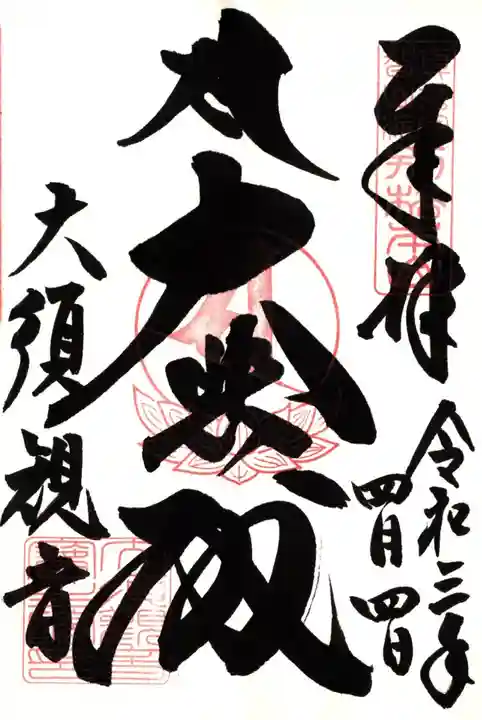 奉拝
令和三年
四月四日
大悲殿
大須観音